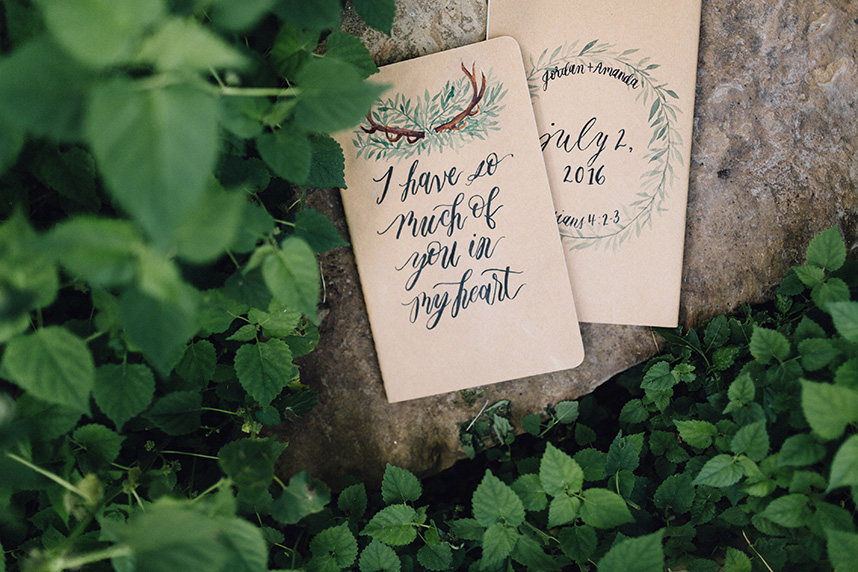 I have so
much of
you in
my heart
Jordan + Amanda
July 2,
2016
4:2-3